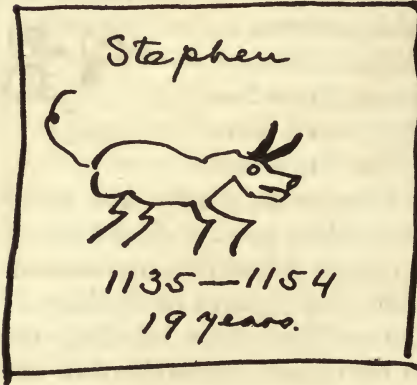 Stephen
1135—1154
19 years.